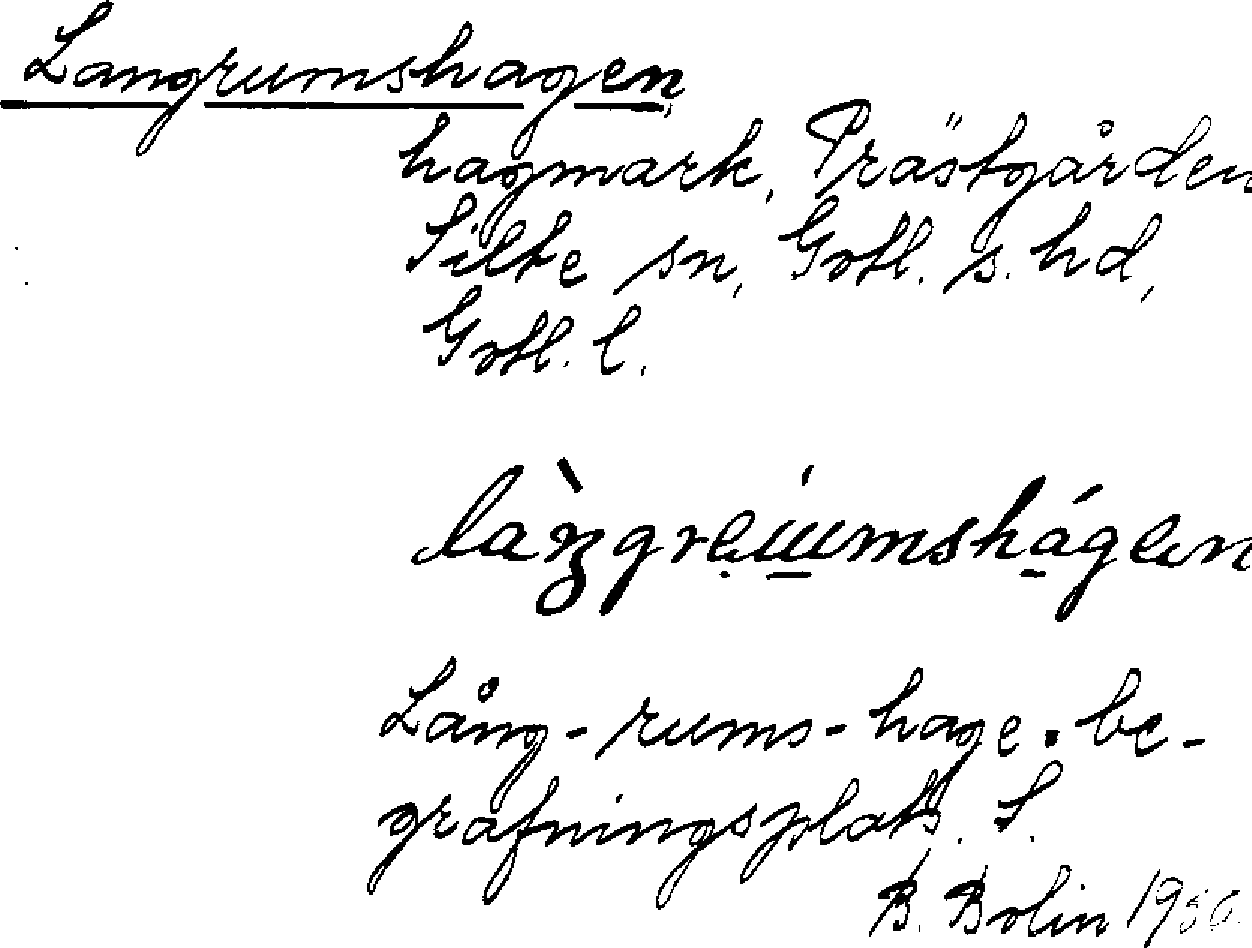 Langrumshagen,
hagmark, Prästgården
Silte sn, Gotl. s. hd,
Gotl. l.
Lång-rums-hage. be-
grafningsplats. S.
B. Bolin 1930.